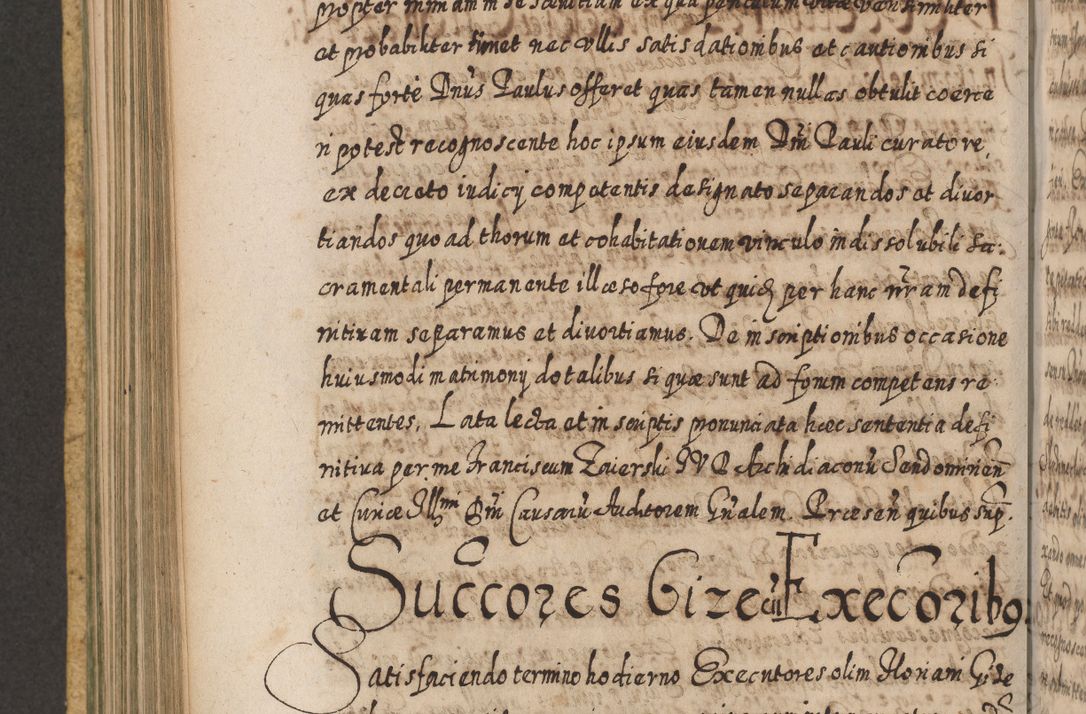 propter inimam in se saevitiam ex qua periculum vitae verisimiliter
et probabiliter timet nec vllis satis dationibus et cautionibus si
quas forte Dnus Paulus offeret quas tamen nullas obtulit coerce
ri potest recognoscente hoc ipsum eiusdem Dni Pauli curatore
ex decreto iudicij competentis designato separandos et divor
tiandos quo ad thorum et cohabitationem vinculo indissolubili Sa:
cramentali permanente illaeso fore ut quidem per hanc nram defi
nitivam separamus et divortiamus. De inscriptionibus occasione
huiusmodi matrimonij dotalibus si quae sunt ad forum competens re
mittentes. Lata lecta et in scriptis pronunciata haec sententia defi
nitiva per me Franciscum Zaierski JVD Archidiaconu Sendomirien
et Curiae Illmi Dni Causaru Auditorem Gnalem. Praesen quibus sup.
Succores Gize cu Execoribq.
Satisfaciendo termino hodierno Executores olim Floriani Gize